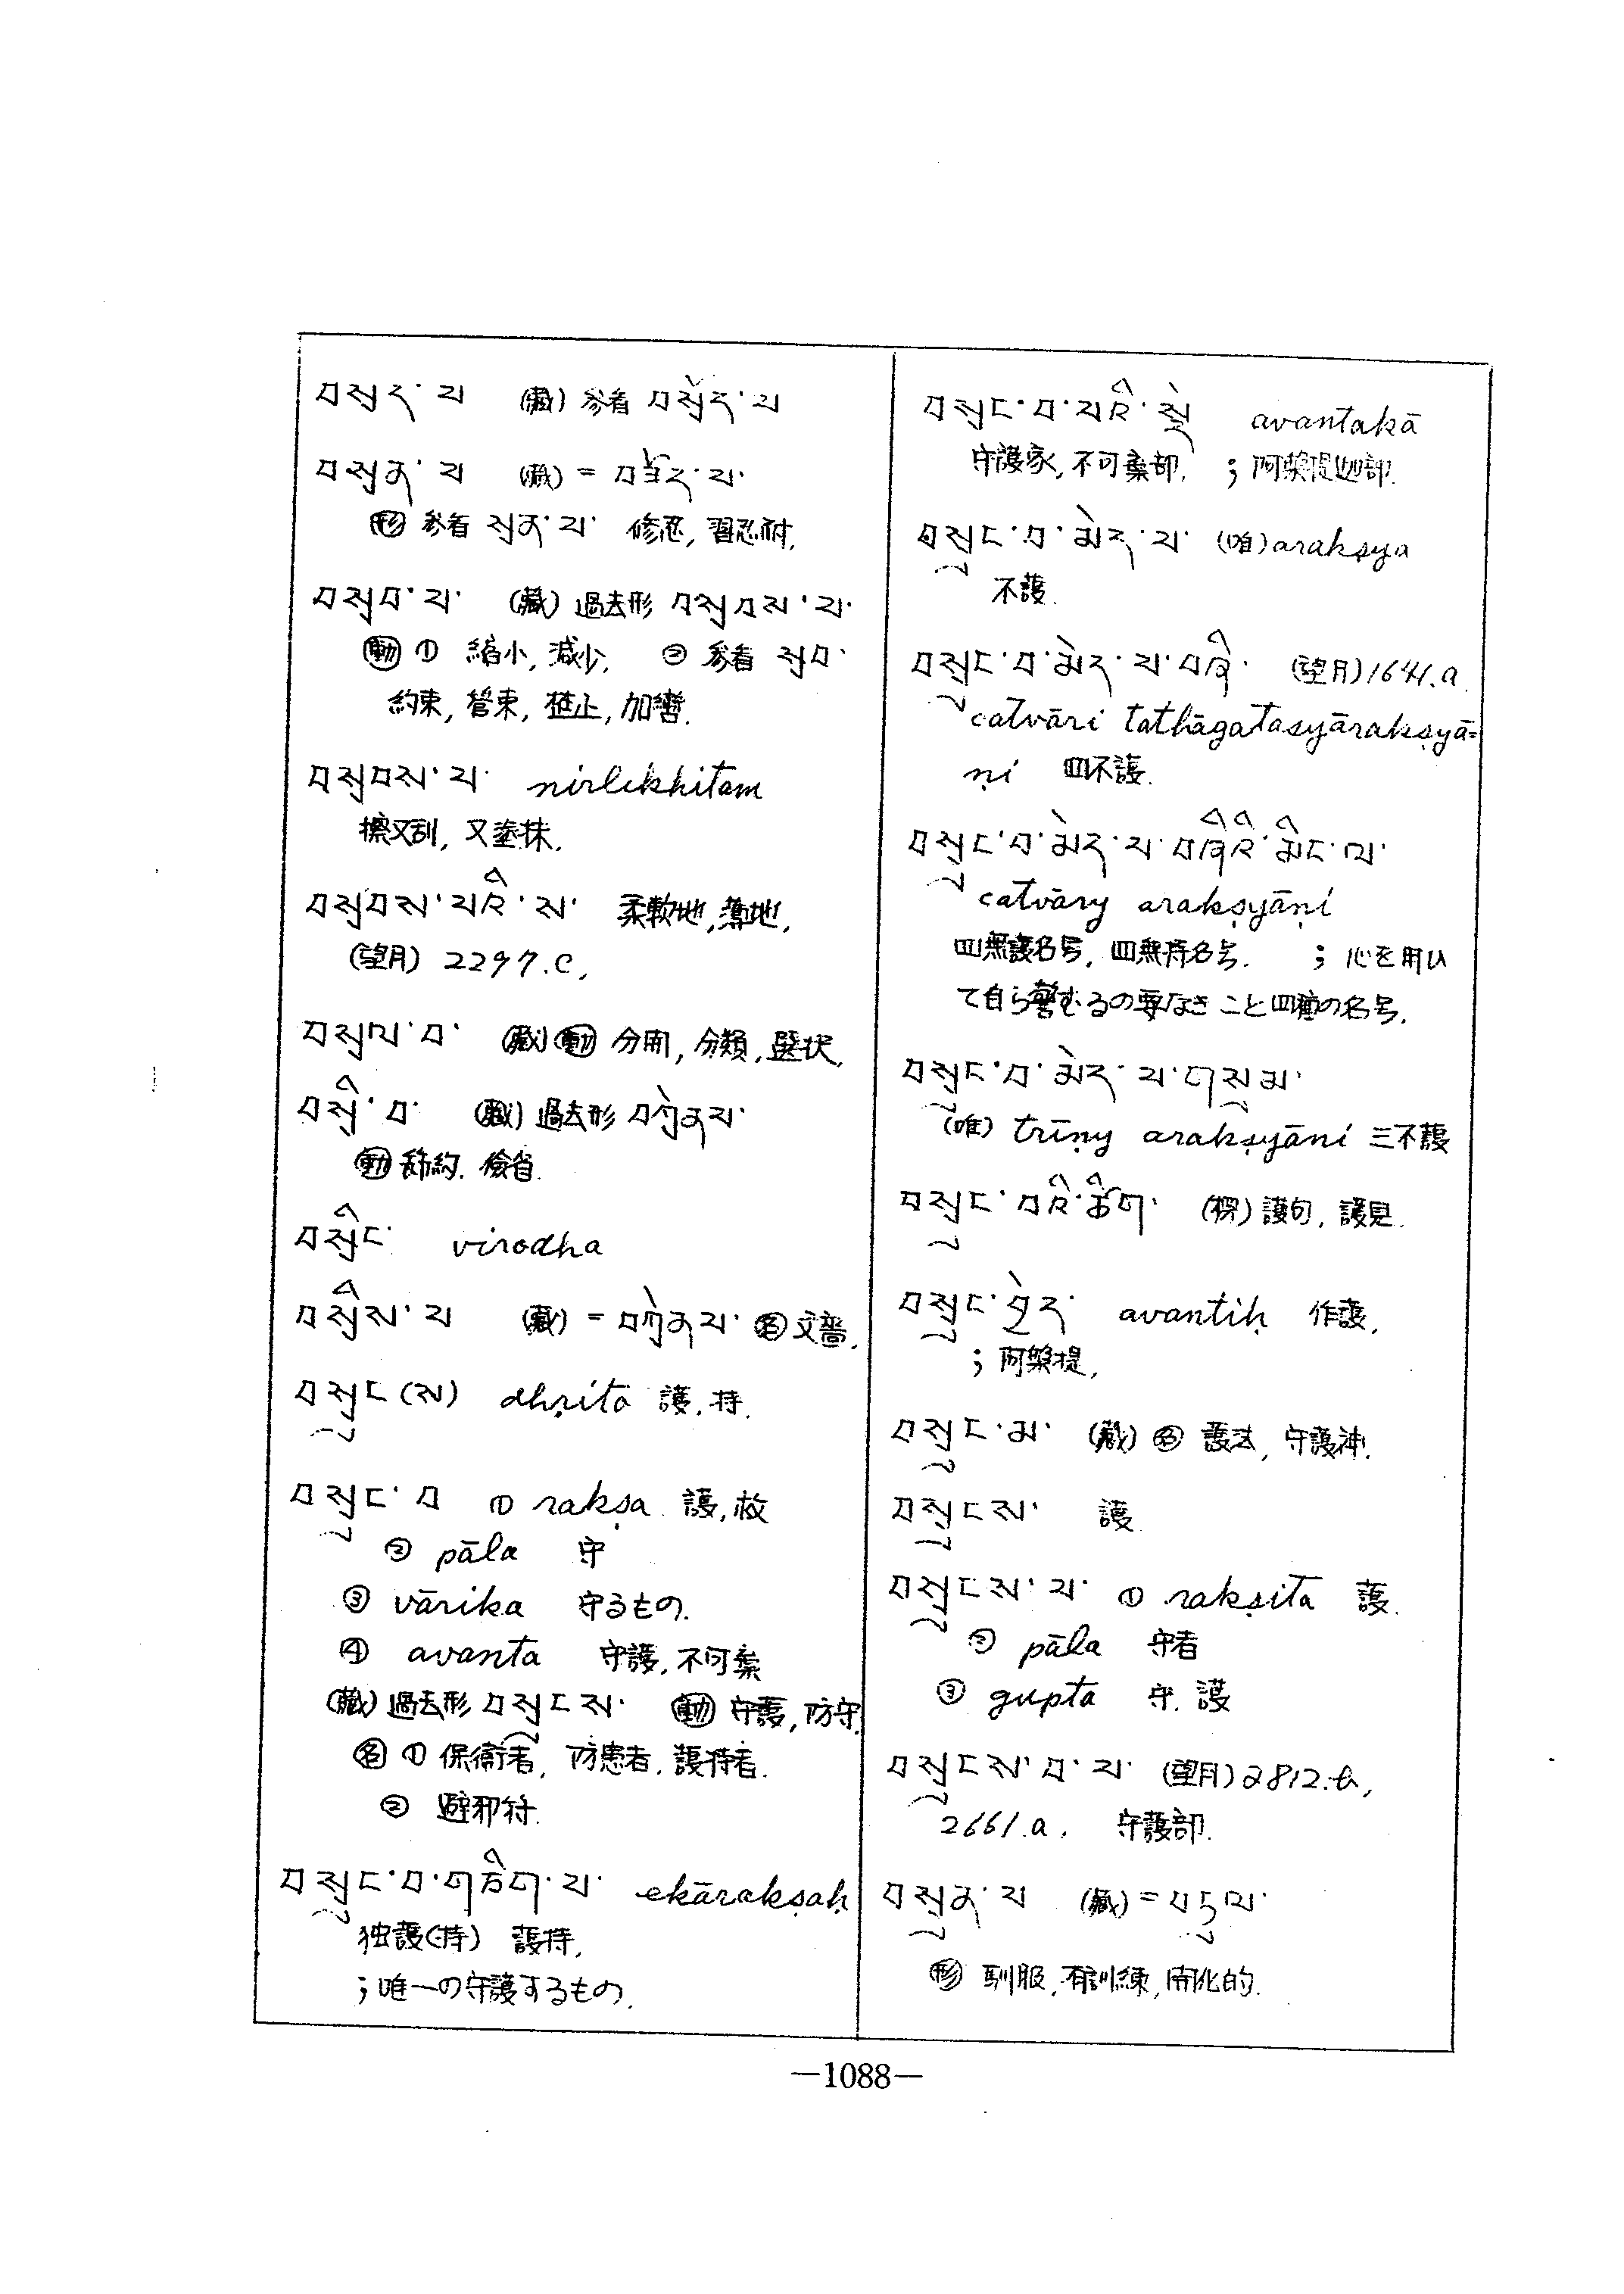 བསྲད་པ (藏) 参看 བསྲོད་པ
བསྲན་པ (藏) =
形 参看 སྲན་པ་ 修忍, 習忍耐.
བསྲབ་པ་ (藏) 過去形 བསྲབས་པ་
動 ① 縮小, 減少. ② 参看 སྲབ་
約束, 管束, 加轡.
བསྲབས་པ་ nirlikhitam
擦又刮, 又塗抹.
བསྲབས་པའི་ས་ 柔軟地, 薄地,
(望月) 2297.c,
བསྲལ་བ་ (藏) 動 分開, 分類, 選択,
བསྲི་བ་ (藏) 過去形
動 節約. 儉省.
བསྲིང་ virodha
བསྲིས་པ (藏) = 名 文嗇,
བསྲུང(ས) dhṛita 護, 持.
བསྲུང་བ ① rakṣa 護, 救
② pāla 守
③ vārika 守るもの.
④ avanta 守護, 不可棄
(藏) 過去形 བསྲུངས་ 動 守護, 防守.
名 ① 保衛者, 防患者. 護持者.
② 避邪符.
བསྲུང་བ་གཅིག་པ་ ekārakṣaḥ
独護(持) 護持,
; 唯一の守護するもの.
བསྲུང་བ་པའི་སྡེ avantakā
守護家, 不可棄部, ; 阿槃提迦部.
བསྲུང་བ་མེད་པ་ (唯) arakṣya
不護.
བསྲུང་བ་མེད་པ་བཞི་ (望月) 1641.a.
catvāri tathāgatasyārakṣyā=
ṇi 四不護.
བསྲུང་བ་མེད་པ་བཞིའི་མིང་ལ་
catvāry arakṣyāṇi
四無護名号, 四無持名号. ; 心を用ひ
て自ら警むるの要なきこと四種の名号.
བསྲུང་བ་མེད་པ་གསུམ་
(唯) trīṇy arakṣyāni 三不護
བསྲུང་བའི་ཚིག་ (楞) 護句, 護見.
བསྲུང་བྱེད་ avantiḥ 作護,
; 阿槃提,
བསྲུང་མ་ (藏) 名 護法, 守護神.
བསྲུངས་ 護
བསྲུངས་པ་ ① rakṣita 護.
② pāla 守者
③ gupta 守. 護
བསྲུངས་བ་པ་ (望月) 2812.b,
2661.a. 守護部.
བསྲུན་པ (藏) =
形 馴服, 有訓練, 開化的.
—1088—